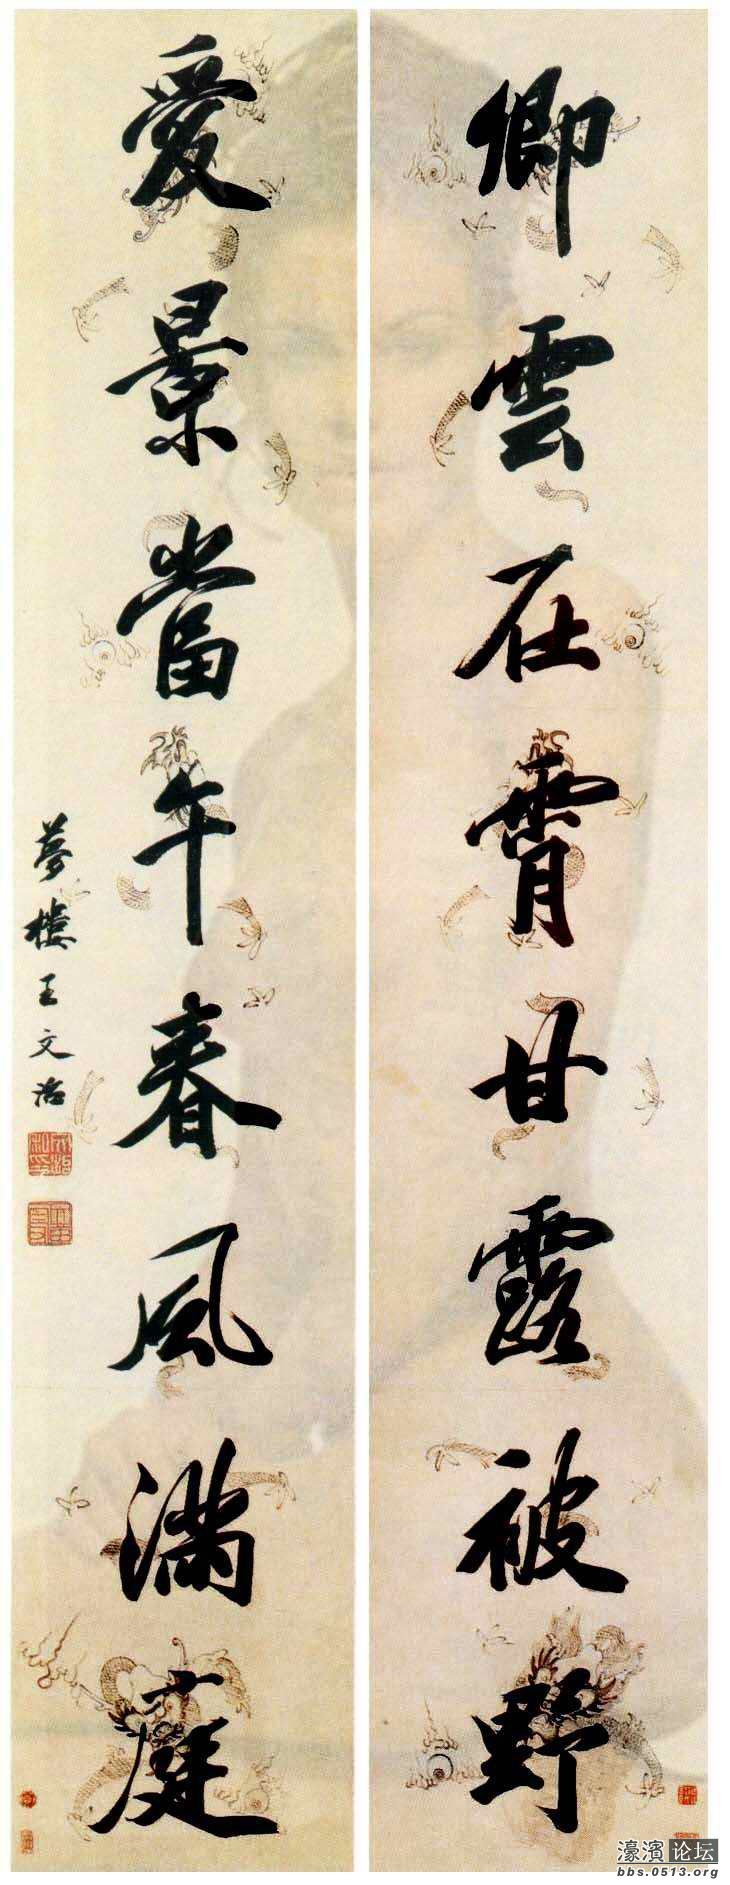 卿雲在霄甘露被野
愛景當午春風滿庭
夢樓王文治
濠濱论坛
bbs.0513.org